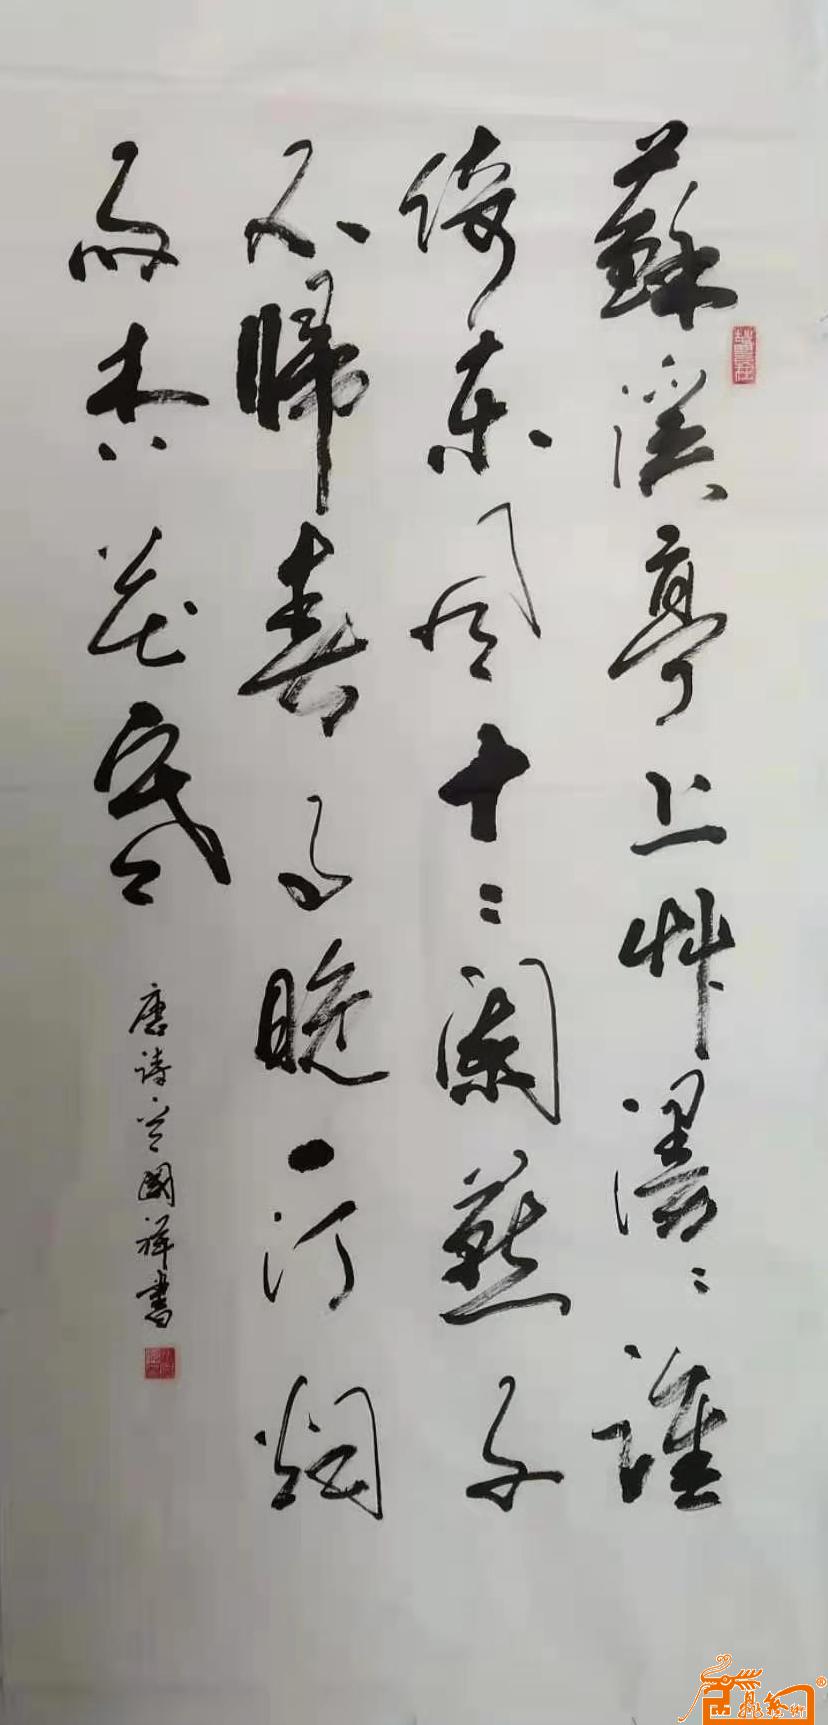 蘇溪亭上艸漫〻誰
倚東風十二闌燕子
不歸春事晚一汀烟
雨杏花寒
唐詩國祥書